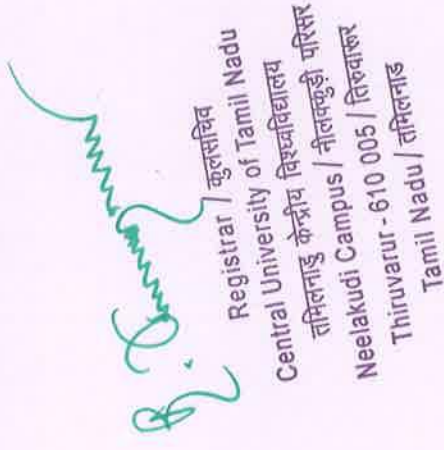 Registrar / कुलसचिव
Central University of Tamil Nadu
तमिलनाडु केन्द्रीय विश्वविद्यालय
Neelakudi Campus / नीलक्कुड़ी परिसर
Thiruvarur - 610 005 / तिरुवारूर
Tamil Nadu / तमिलनाडु